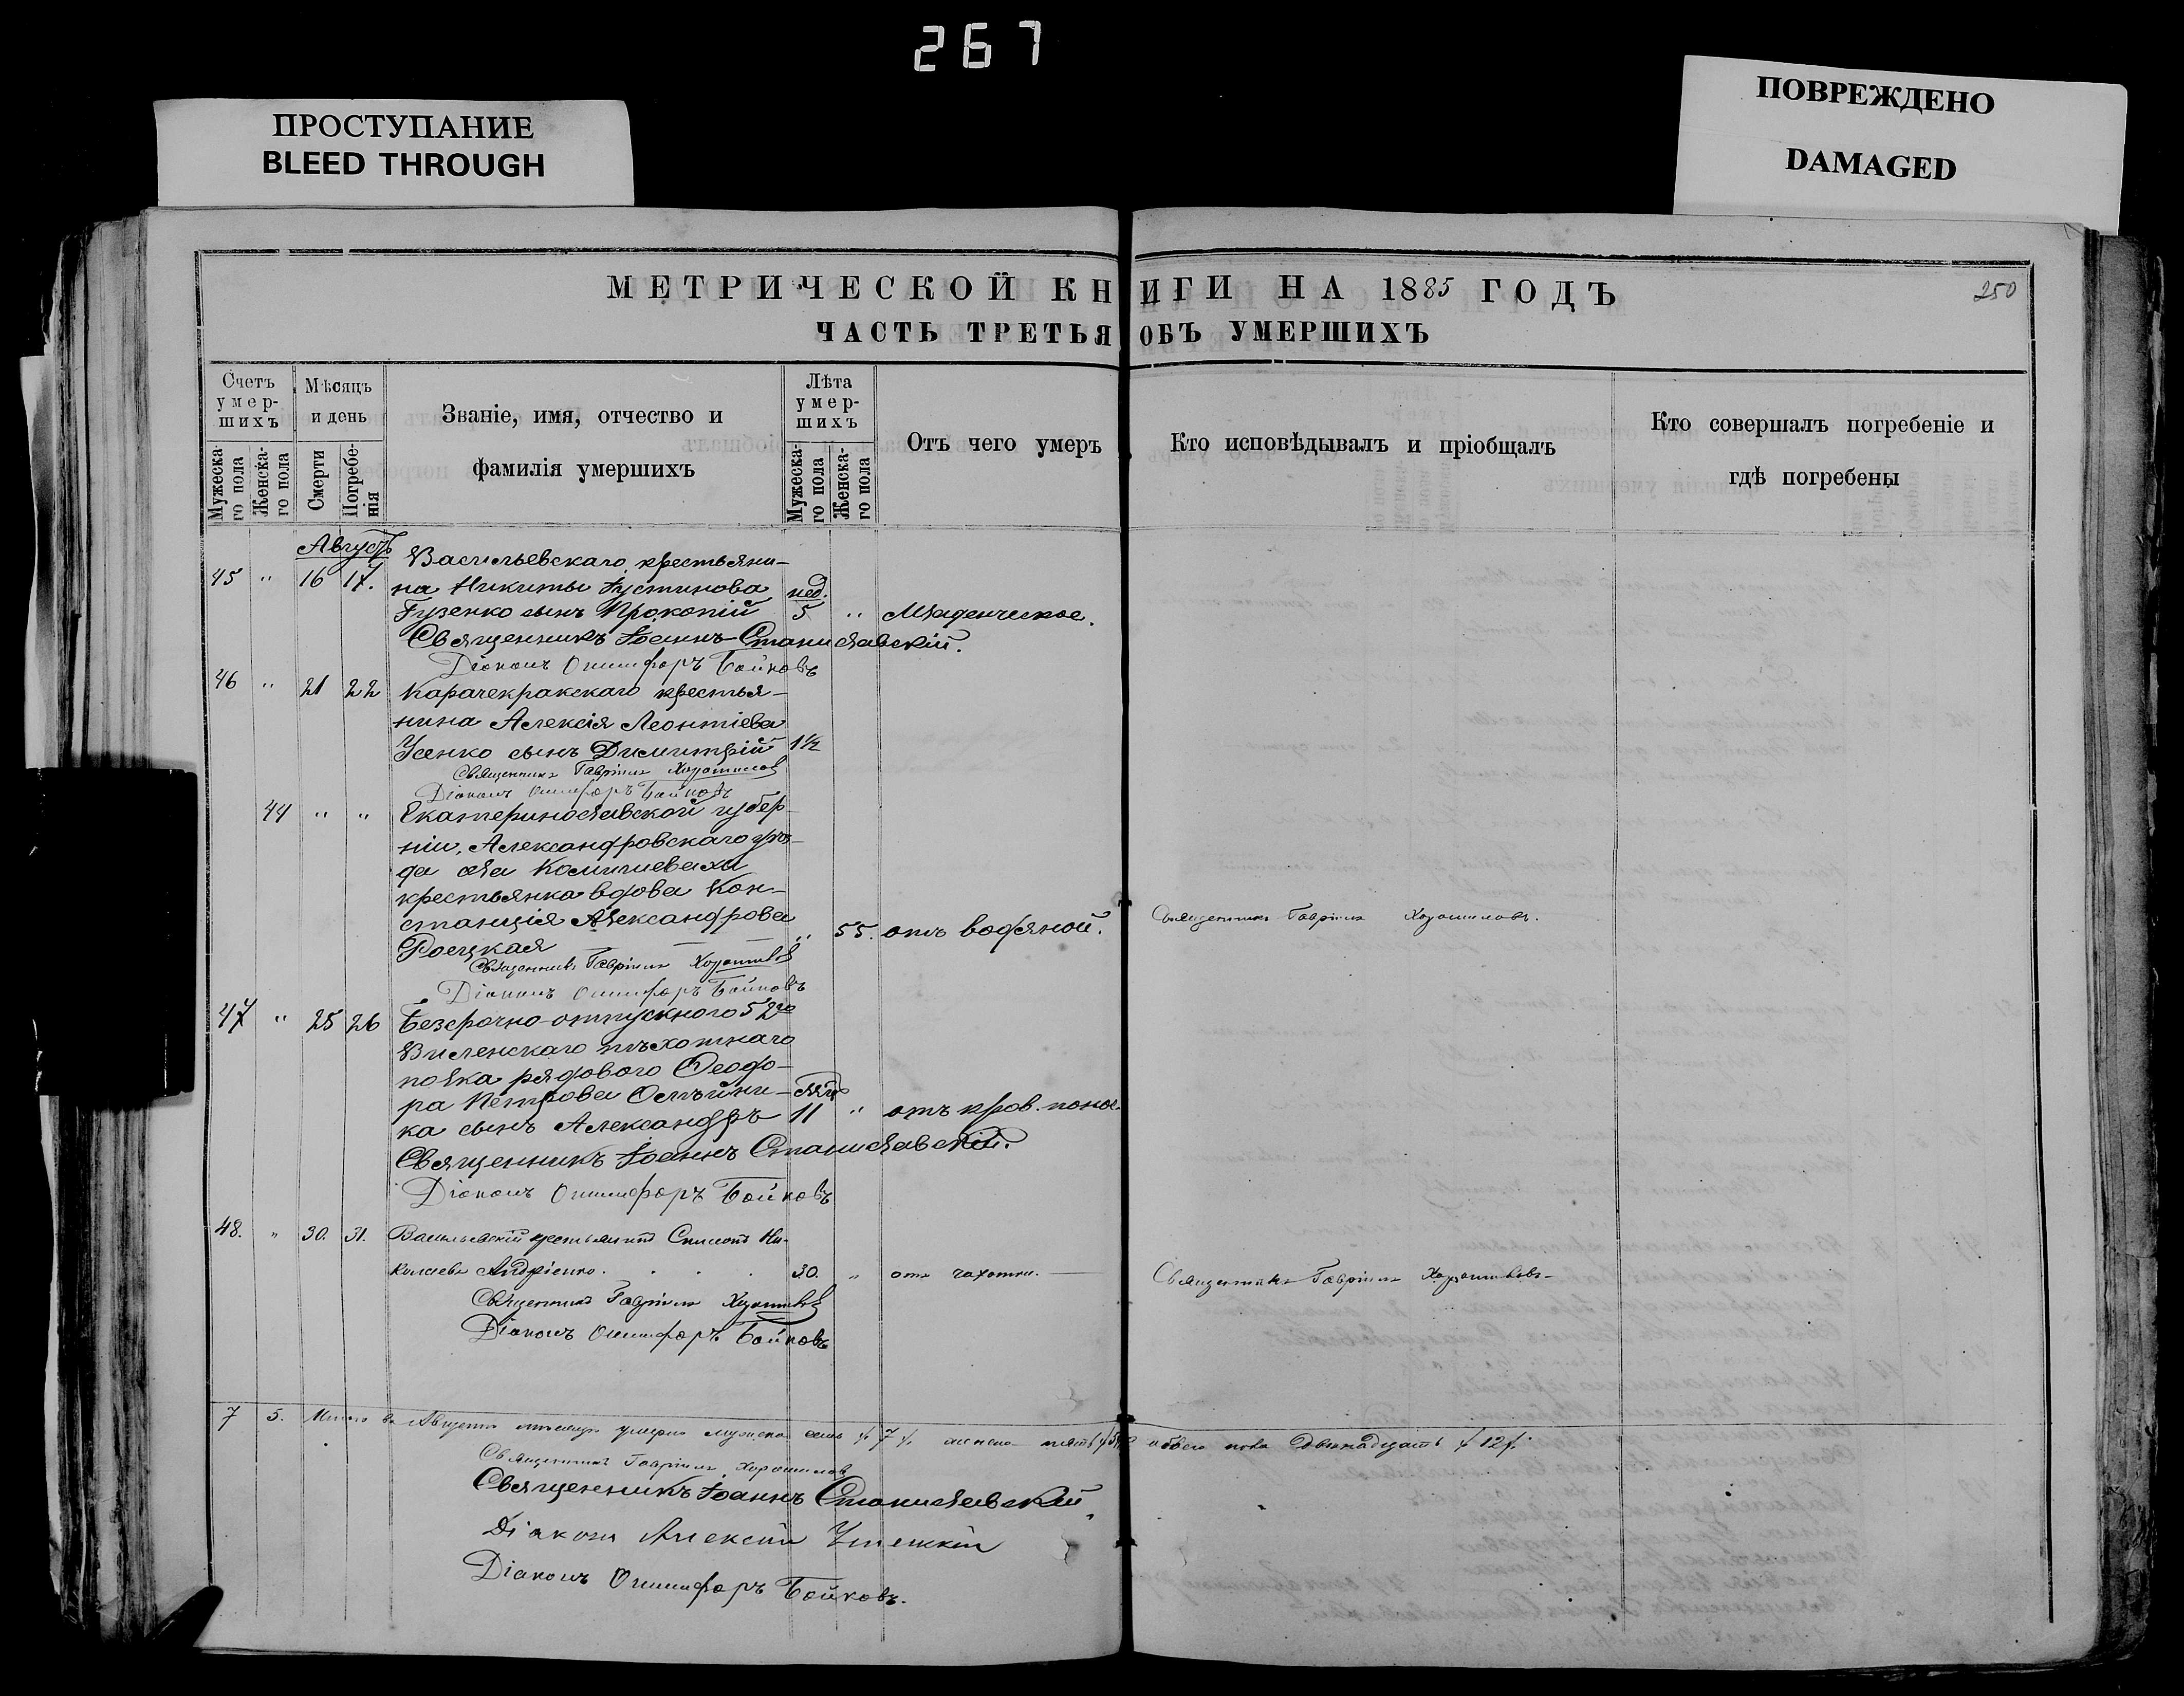 267
ПРОСТУПАНИЕ
BLEED THROUGH
ПОВРЕЖДЕНО
DAMAGED
МЕТРИЧЕСКОЙ КНИГИ НА 1885 ГОДЪ
250
ЧАСТЬ ТРЕТЬЯ ОБЪ УМЕРШИХЪ
Счетъ умер-шихъ
Мужеска-го пола
Женска-го пола
Мѣсяцъ и день
Смерти
Погребе-нія
Званіе, имя, отчество и
фамилія умершихъ
Лѣта умер-шихъ
Мужеска-го пола
Женска-го пола
Отъ чего умеръ
Кто исповѣдывалъ и пріобщалъ
Кто совершалъ погребеніе и
гдѣ погребены
Августъ
Васильевскаго крестьяни-
45 " 16 17. на Никиты Іустинова нед.
Гузенко сынъ Прокопій 5 " Младенческое.
Священникъ Іоаннъ Станиславскій.
Діаконъ Онисифоръ Бойковъ
46 " 21 22 Карачекракскаго крестья-
нина Алексія Леонтіева
Усенко сынъ Димитрій 1½
Священникъ Гавріилъ Хорошиловъ
Діаконъ Онисифоръ Бойковъ
44 " " Екатеринославской губер-
ніи, Александровскаго уѣз-
да села Комишевахи
крестьянка вдова Кон-
станція Александрова
Роецкая " 55. отъ водяной. Священникъ Гавріилъ Хорошиловъ.
Священникъ Гавріилъ Хорошиловъ
Діаконъ Онисифоръ Бойковъ
47 " 25 26 Безсрочно-отпускного 52го
Виленскаго пѣхотнаго
полка рядового Ѳеодо-
ра Петрова Олѣйни-
ка сынъ Александръ 11 " отъ кров. понос.
Священникъ Іоаннъ Станиславскій.
Діаконъ Онисифоръ Бойковъ
48. " 30. 31. Васильевскій крестьянинъ Симеонъ Ни-
колаевъ Андріенко. . . . 30. " отъ чахотки. Священникъ Гавріилъ Хорошиловъ
Священникъ Гавріилъ Хорошиловъ
Діаконъ Онисифоръ Бойковъ
7 5. Итого въ Августѣ мѣсяцѣ умерло мужска семь /7/. женска пять /5/ обоего пола двѣнадцать /12/.
Священникъ Гавріилъ Хорошиловъ
Священникъ Іоаннъ Станиславскій.
Діаконъ Алексій
Діаконъ Онисифоръ Бойковъ.